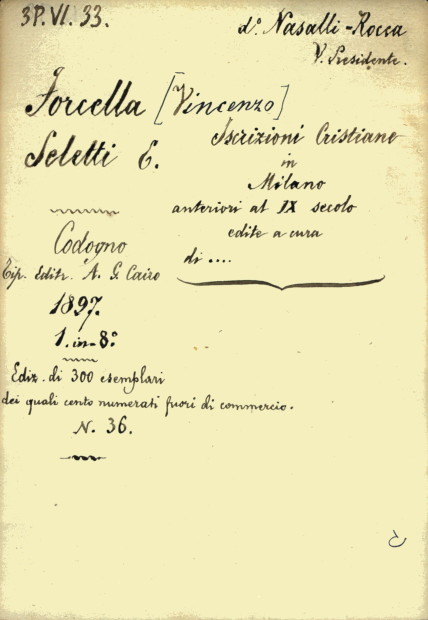 3P.VI.33.
d.º Nasalli-Rocca
V. Presidente.
Forcella [Vincenzo]
Seletti E.
Iscrizioni Cristiane
in
Milano
anteriori al IX secolo
edite a cura
di ....
Codogno
Tip. Editr. A. G. Cairo
1897.
1. in-8º
Ediz. di 300 esemplari
dei quali cento numerati fuori di commercio.
N. 36.